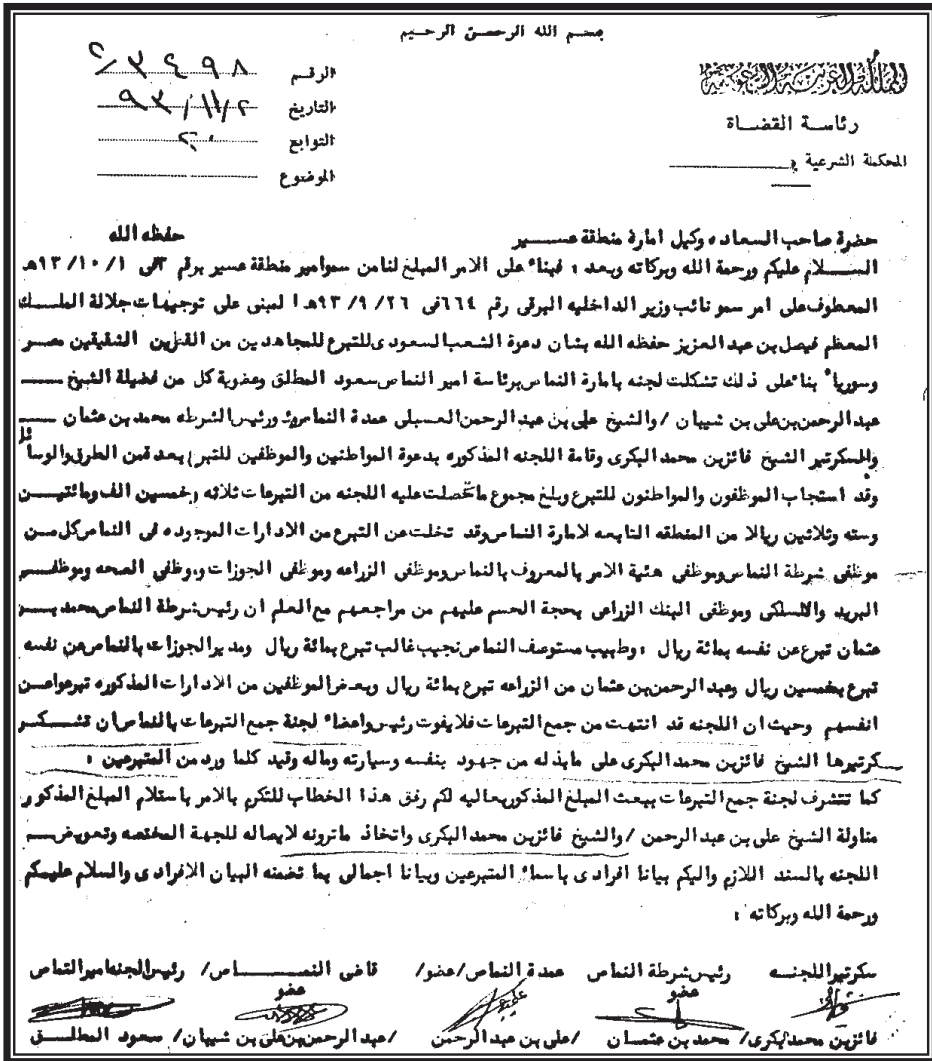 بسم الله الرحمن الرحيم
المملكة العربية السعودية
رئاسة القضاة
المحكمة الشرعية ب
الرقم ٣٤٩٨/٢
التاريخ ٩٣/١١/٢
التوابع ٢٠
الموضوع
حضرة صاحب السعاده وكيل امارة منطقة عسير حفظه الله
السلام عليكم ورحمة الله وبركاته وبعد : فبناء على الامر المبلغ لنا من سمو امير منطقة عسير برقم في ٩٣/١٠/١هـ
المعطوف على امر سمو نائب وزير الداخليه البرقى رقم ٦٦٤ فى ٩٣/٩/٢٦هـ المبنى على توجيهات جلالة الملك
المعظم فيصل بن عبد العزيز حفظه الله بشان دعوة الشعب السعودى للتبرع للمجاهدين من القطرين الشقيقين مصر
وسوريا بناء على ذلك تشكلت لجنه بامارة النماص برئاسة امير النماص سعود المطلق وعضوية كل من فضيلة الشيخ
عبد الرحمن بن على بن شيبان / والشيخ على بن عبد الرحمن العسبلى عمدة النماص ورئيس الشرطه محمد بن عثمان
والسكرتير الشيخ فائز بن محمد البكرى وقامة اللجنه المذكوره بدعوة المواطنين والموظفين للتبرع بعد من الطرق والوسائل
وقد استجاب الموظفون والمواطنون للتبرع وبلغ مجموع ما تحصلت عليه اللجنه من التبرعات ثلاثه وخمسين الف ومائتين
وسته وثلاثين ريالا من المنطقه التابعه لامارة النماص وقد تخلت عن التبرع من الادارات الموجوده فى النماص كل من
موظفى شرطة النماص وموظفى هئية الامر بالمعروف بالنماص وموظفى الزراعه وموظفى الجوزات وموظفى الصحه وموظفى
البريد والاسلكى وموظفى البنك الزراعى بحجة الحسم عليهم من مراجعهم مع العلم ان رئيس شرطة النماص محمد بن
عثمان تبرع عن نفسه بمائة ريال : وطبيب مستوصف النماص نجيب غالب تبرع بمائة ريال ومدير الجوزات بالنماص عن نفسه
تبرع بخمسين ريال وعبد الرحمن بن عثمان من الزراعه تبرع بمائة ريال وبعض الموظفين من الادارات المذكوره تبرعوا عن
انفسهم وحيث ان اللجنه قد انتهت من جمع التبرعات فلا يفوت رئيس واعضاء لجنة جمع التبرعات بالنماص ان تشكر
سكرتيرها الشيخ فائز بن محمد البكرى على مابذله من جهود بنفسه وسيارته وماله وقيد كلما ورد من المتبرعين :
كما تتشرف لجنة جمع التبرعات ببعث المبلغ المذكور بعاليه لكم رفق هذا الخطاب للتكرم بالامر باستلام المبلغ المذكور
مناولة الشيخ على بن عبد الرحمن / والشيخ فائز بن محمد البكرى واتخاذ ماترونه لايصاله للجهة المختصه وتعويض
اللجنه بالسند اللازم واليكم بيانا افرادى باسماء المتبرعين وبيانا اجمالى بما تضمنه البيان الافرادى والسلام عليكم
ورحمة الله وبركاته :
سكرتير اللجنه رئيس شرطة النماص عمدة النماص/عضو/ قاضى النماص/ رئيس اللجنه امير النماص
عضو عضو
فائز بن محمد البكرى/ محمد بن عثمان /على بن عبد الرحمن /عبد الرحمن بن على بن شيبان/ سعود المطلق